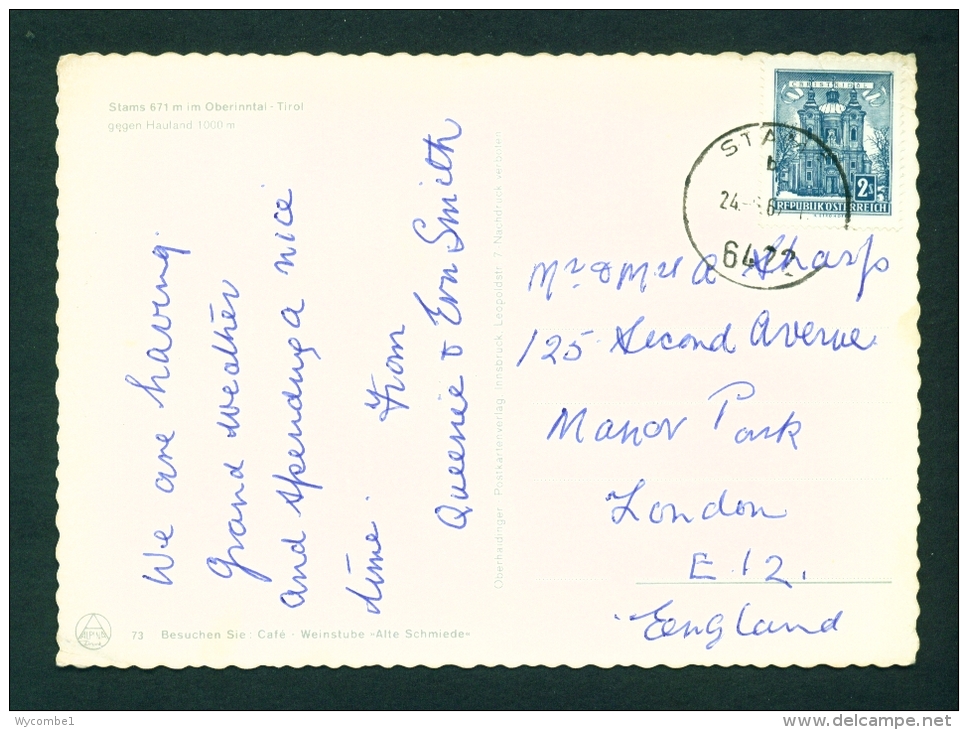 Stams 671 m im Oberinntal - Tirol
gegen Hauland 1000 m
We are having
grand weather
and spending a nice
time. From
Queenie & Ern Smith
73 Besuchen Sie: Café - Weinstube »Alte Schmiede«
Oberhaidinger Postkartenverlag Innsbruck, Leopoldstr. 7 Nachdruck verboten
CHRISTKINDL
2S
REPUBLIK ÖSTERREICH
STAMS
b
6422
Mr & Mrs A Sharp
125 Second Avenue
Manor Park
London
E 12.
England
Wycombe1
www.delcampe.net